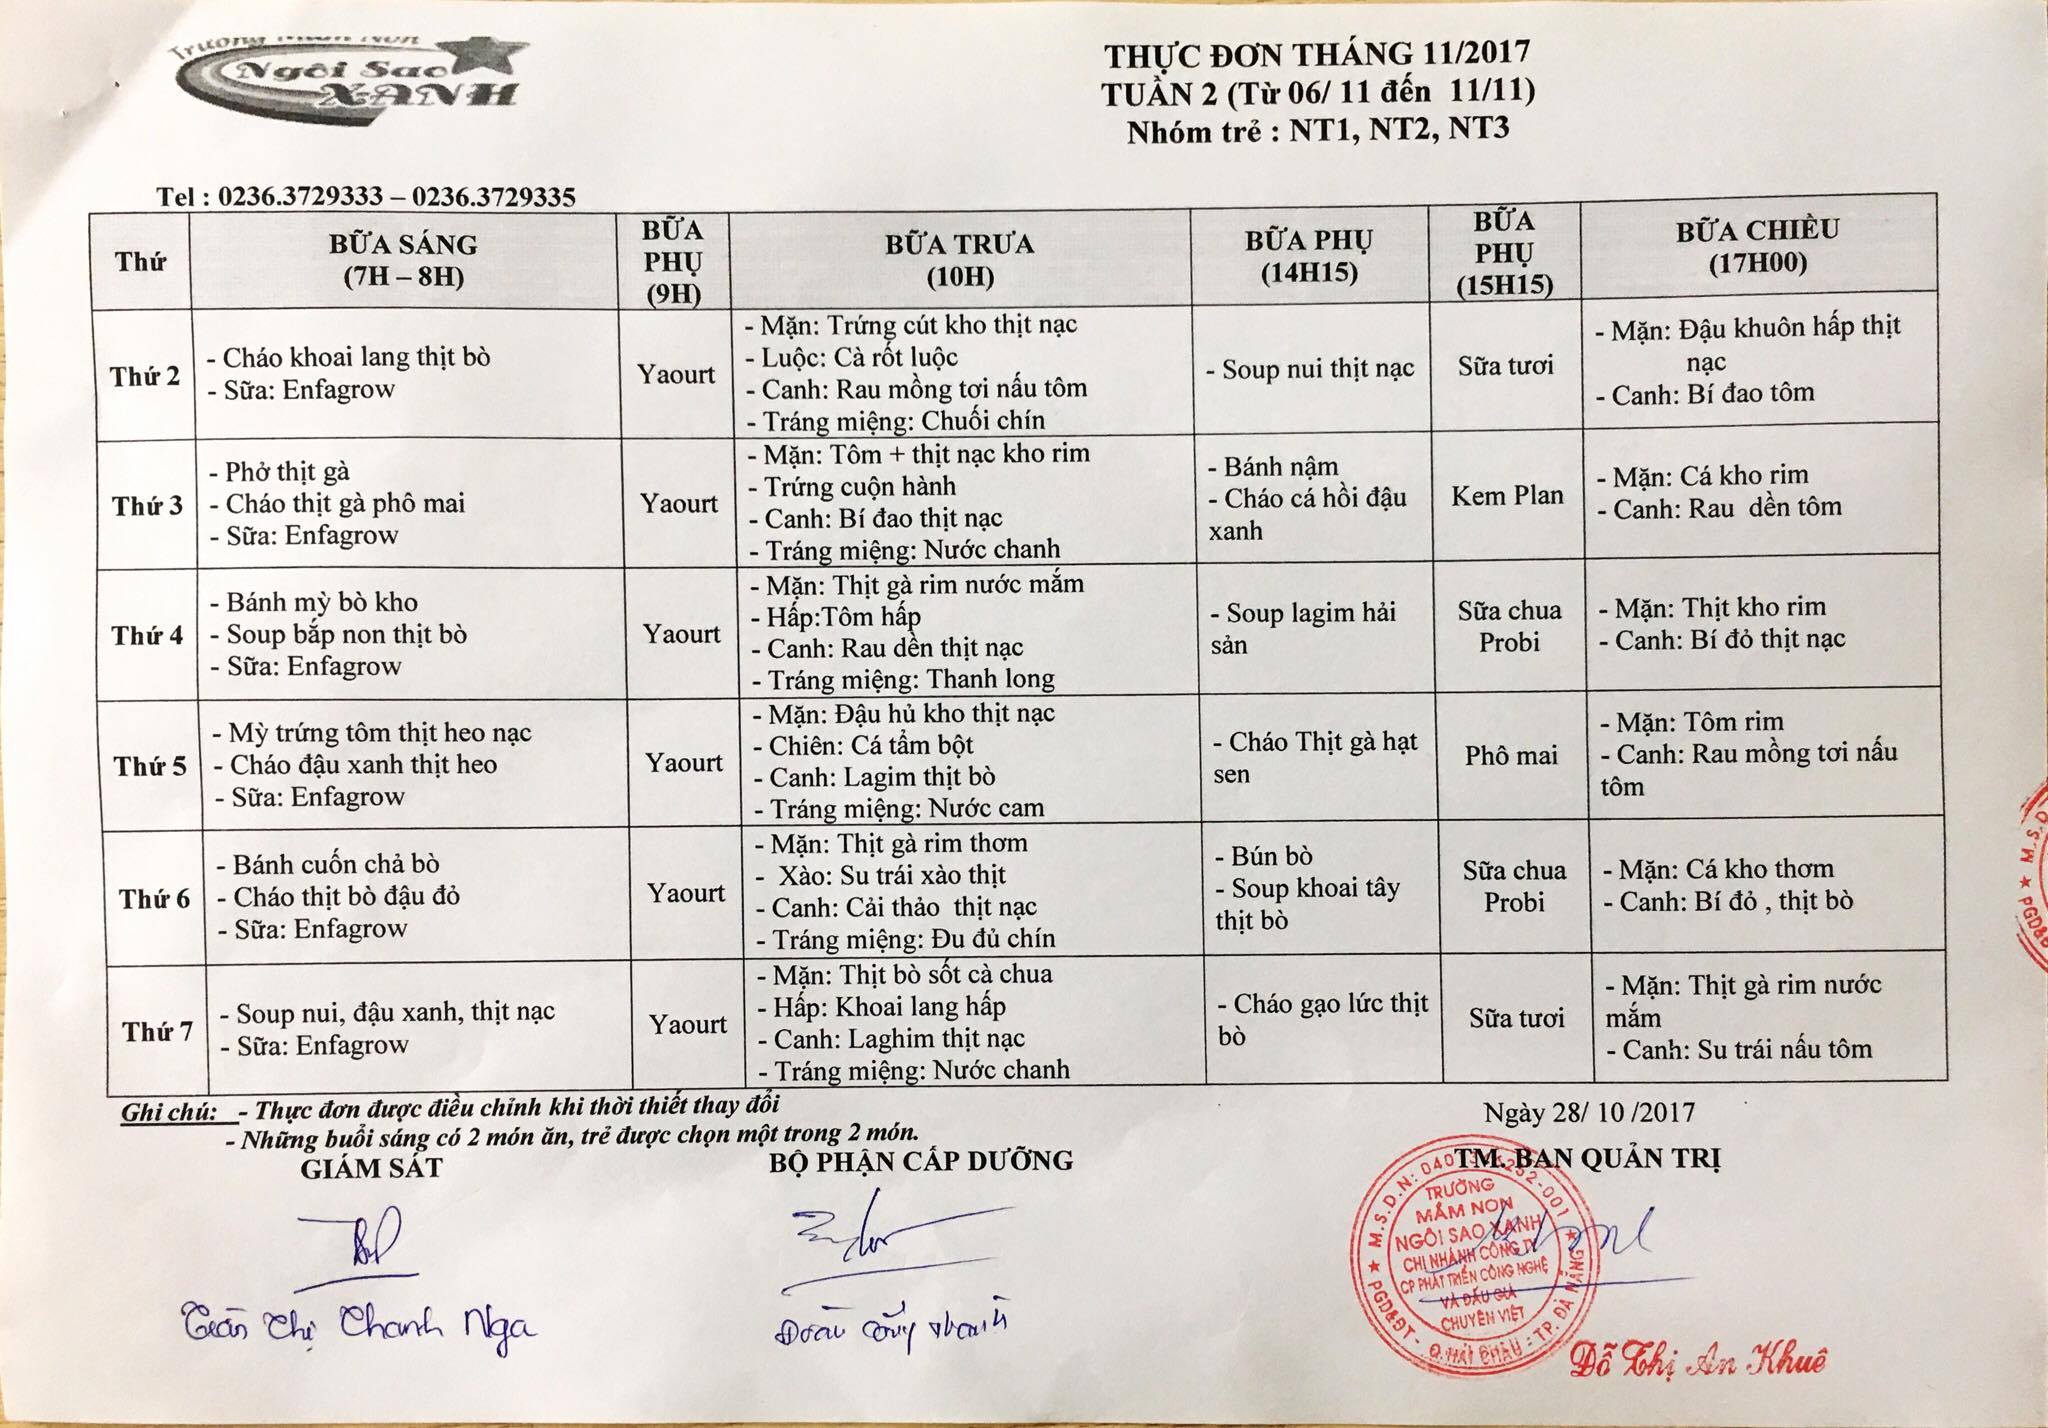 Trường Mầm Non
Ngôi Sao
XANH
THỰC ĐƠN THÁNG 11/2017
TUẦN 2 (Từ 06/ 11 đến 11/11)
Nhóm trẻ : NT1, NT2, NT3
Tel : 0236.3729333 – 0236.3729335
Thứ
BỮA SÁNG
(7H – 8H)
BỮA
PHỤ
(9H)
BỮA TRƯA
(10H)
BỮA PHỤ
(14H15)
BỮA
PHỤ
(15H15)
BỮA CHIỀU
(17H00)
Thứ 2
- Cháo khoai lang thịt bò
- Sữa: Enfagrow
Yaourt
- Mặn: Trứng cút kho thịt nạc
- Luộc: Cà rốt luộc
- Canh: Rau mồng tơi nấu tôm
- Tráng miệng: Chuối chín
- Soup nui thịt nạc
Sữa tươi
- Mặn: Đậu khuôn hấp thịt
nạc
- Canh: Bí đao tôm
Thứ 3
- Phở thịt gà
- Cháo thịt gà phô mai
- Sữa: Enfagrow
Yaourt
- Mặn: Tôm + thịt nạc kho rim
- Trứng cuộn hành
- Canh: Bí đao thịt nạc
- Tráng miệng: Nước chanh
- Bánh nậm
- Cháo cá hồi đậu
xanh
Kem Plan
- Mặn: Cá kho rim
- Canh: Rau dền tôm
Thứ 4
- Bánh mỳ bò kho
- Soup bắp non thịt bò
- Sữa: Enfagrow
Yaourt
- Mặn: Thịt gà rim nước mắm
- Hấp:Tôm hấp
- Canh: Rau dền thịt nạc
- Tráng miệng: Thanh long
- Soup lagim hải
sản
Sữa chua
Probi
- Mặn: Thịt kho rim
- Canh: Bí đỏ thịt nạc
Thứ 5
- Mỳ trứng tôm thịt heo nạc
- Cháo đậu xanh thịt heo
- Sữa: Enfagrow
Yaourt
- Mặn: Đậu hủ kho thịt nạc
- Chiên: Cá tẩm bột
- Canh: Lagim thịt bò
- Tráng miệng: Nước cam
- Cháo Thịt gà hạt
sen
Phô mai
- Mặn: Tôm rim
- Canh: Rau mồng tơi nấu
tôm
Thứ 6
- Bánh cuốn chả bò
- Cháo thịt bò đậu đỏ
- Sữa: Enfagrow
Yaourt
- Mặn: Thịt gà rim thơm
- Xào: Su trái xào thịt
- Canh: Cải thảo thịt nạc
- Tráng miệng: Đu đủ chín
- Bún bò
- Soup khoai tây
thịt bò
Sữa chua
Probi
- Mặn: Cá kho thơm
- Canh: Bí đỏ , thịt bò
Thứ 7
- Soup nui, đậu xanh, thịt nạc
- Sữa: Enfagrow
Yaourt
- Mặn: Thịt bò sốt cà chua
- Hấp: Khoai lang hấp
- Canh: Laghim thịt nạc
- Tráng miệng: Nước chanh
- Cháo gạo lức thịt
bò
Sữa tươi
- Mặn: Thịt gà rim nước
mắm
- Canh: Su trái nấu tôm
Ghi chú: - Thực đơn được điều chỉnh khi thời thiết thay đổi
- Những buổi sáng có 2 món ăn, trẻ được chọn một trong 2 món.
Ngày 28/ 10 /2017
GIÁM SÁT
BỘ PHẬN CẤP DƯỠNG
TM. BAN QUẢN TRỊ
TRƯỜNG
MẦM NON
NGÔI SAO XANH
CHI NHÁNH CÔNG TY
CP PHÁT TRIỂN CÔNG NGHỆ
VÀ ĐẤU GIÁ
CHUYÊN VIỆT
PGD&ĐT - Q. HẢI CHÂU - TP. ĐÀ NẴNG
Trần Thị Thanh Nga
Đoàn Công Thành
Đỗ Thị An Khuê